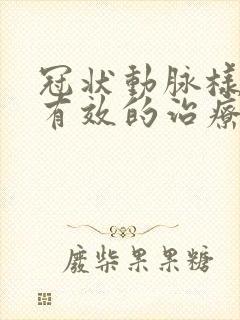 冠状動脉様
有效的治療
廢柴果果糖